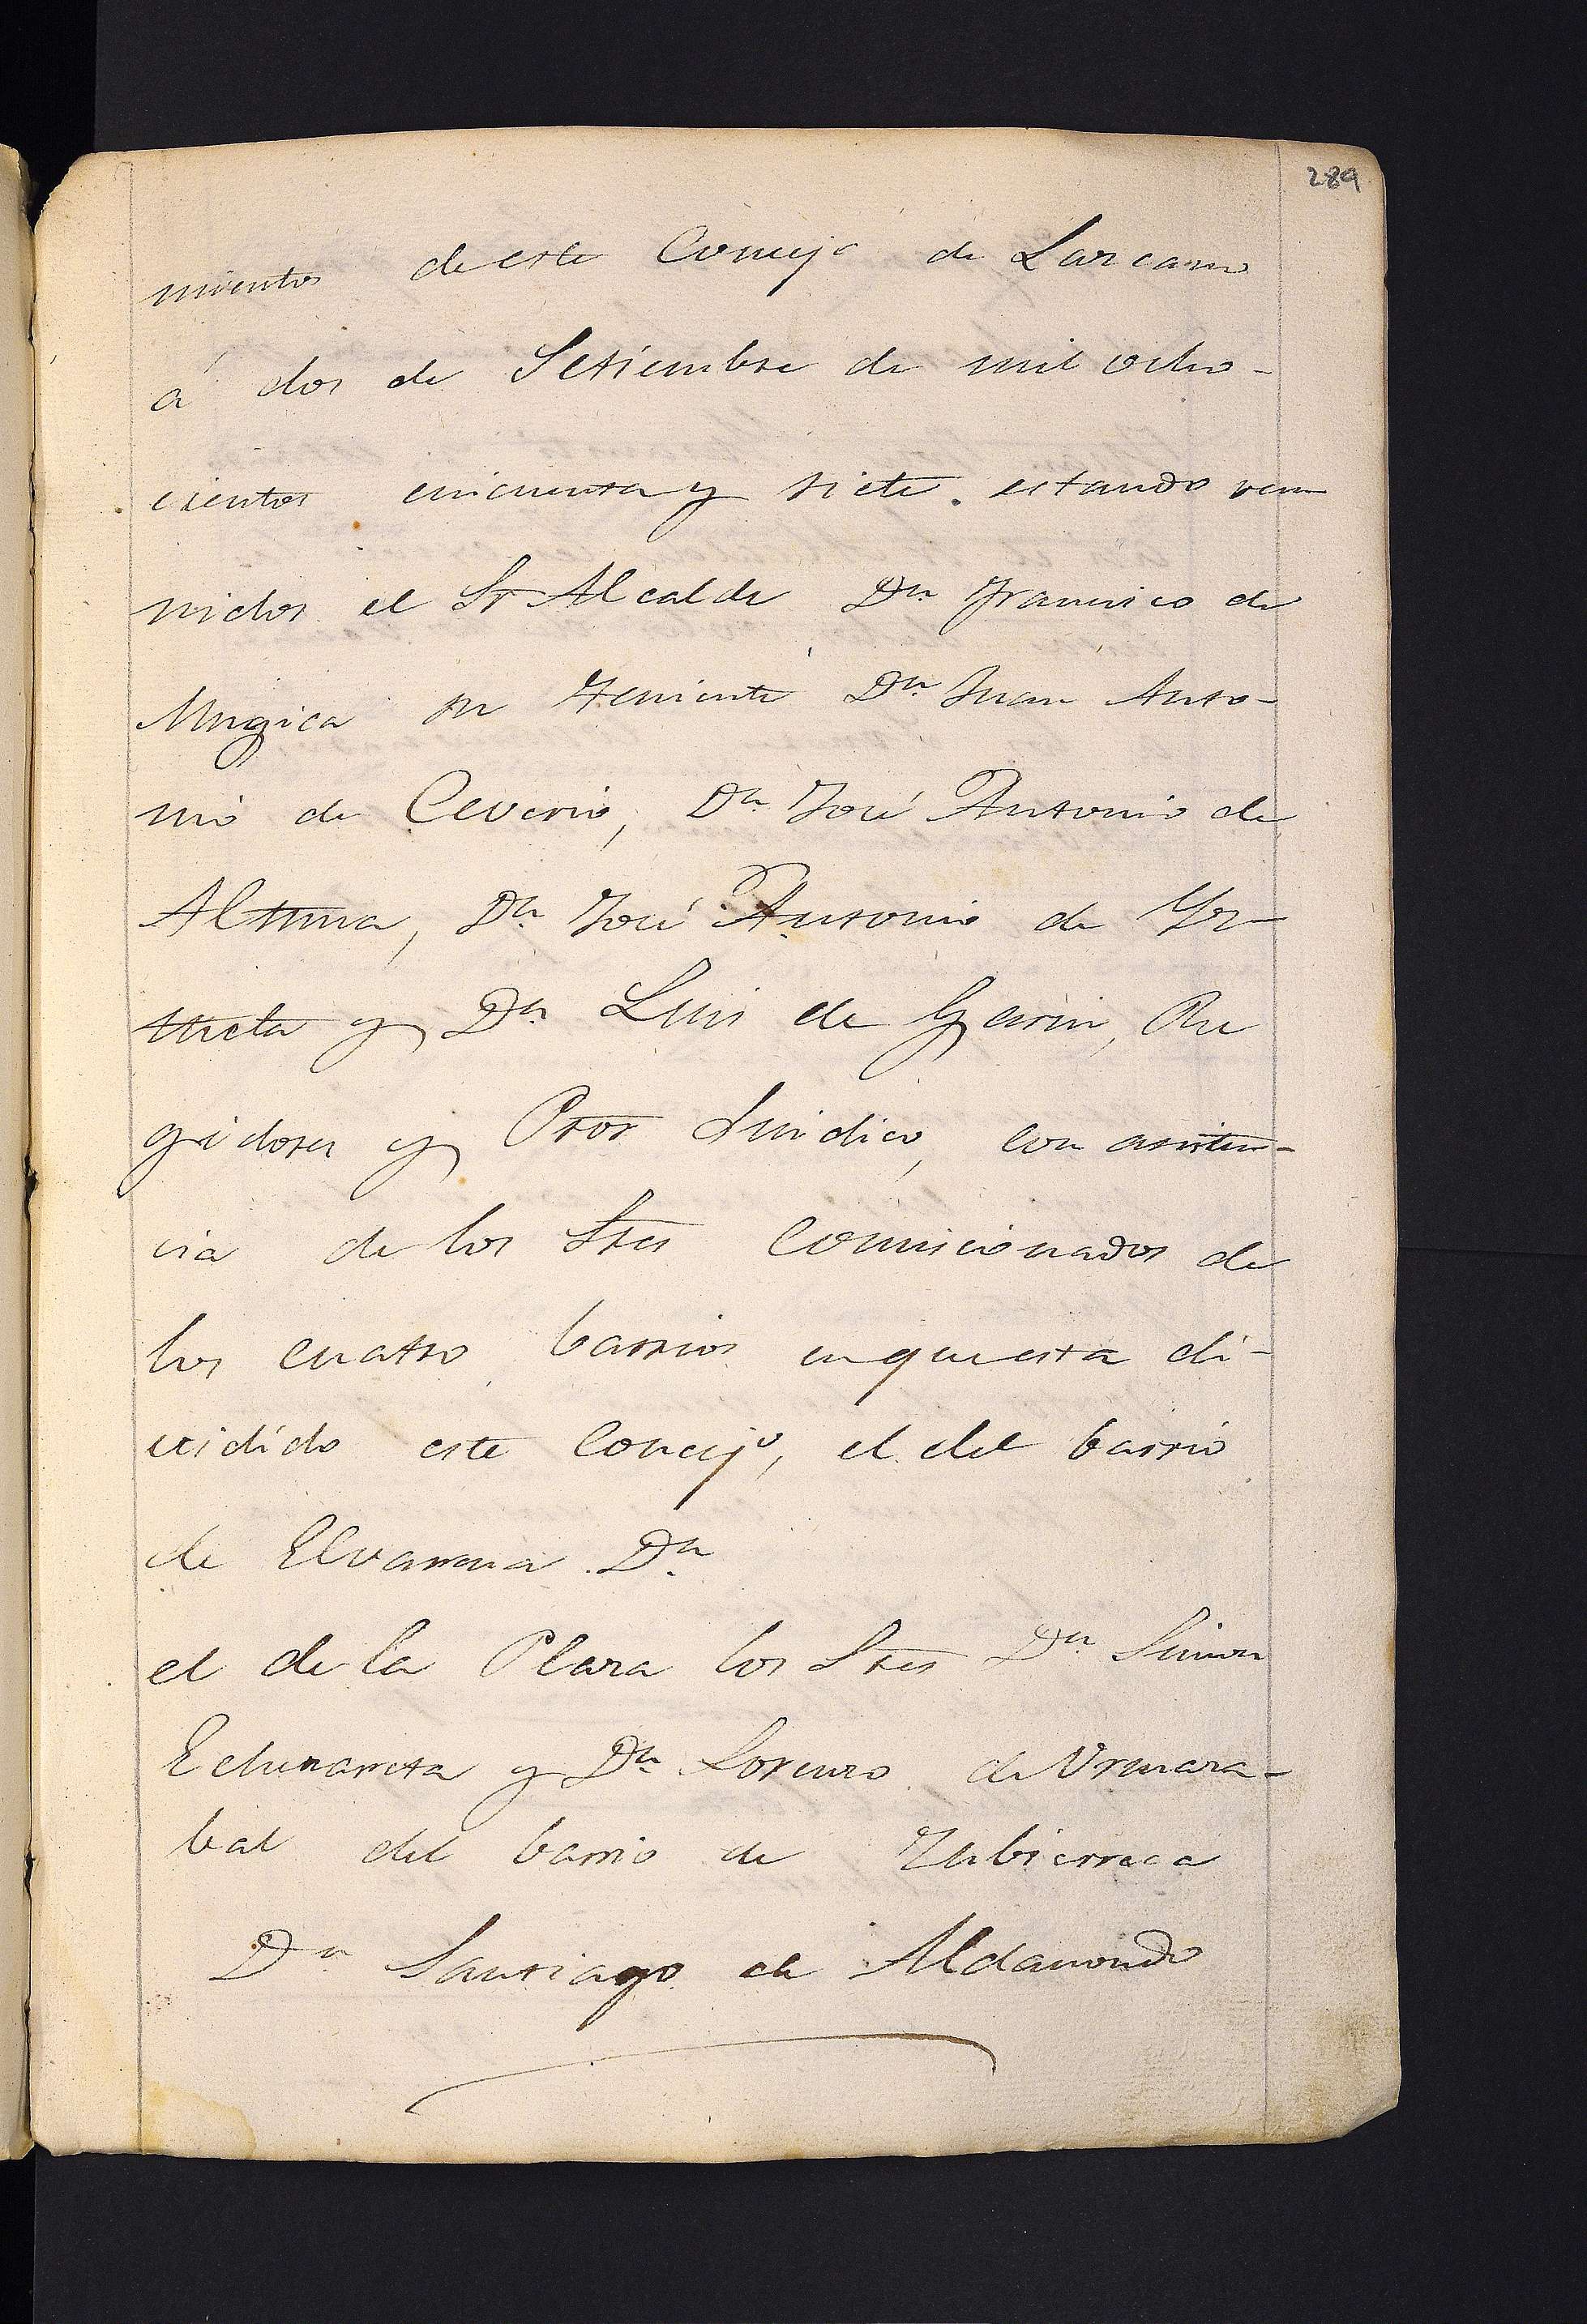 289
mientos de este Concejo de Larcano
á dos de Setiembre de mil ocho-
cientos cincuenta y siete. estando reu
nidos el Sr Alcalde Dn Francisco de
Mugica su Teniente Dn Juan Anto-
nio de Ceverio, Dn José Antonio de
Altuna, Dn José Antonio de Yr-
y Dn Luis de Garin, Re
gidores y Pror Sindico, con asisten-
cia de los Sres Comicionados de
los cuatro barrios enquesta di-
vidido este Concejo, el del barrio
de Elvarrena Dn
el de la Plara los Sres Dn Simon
y Dn Lorenzo de Urruzara-
bal del barrio de Zubierreca
Dn Santiago de Aldamondo